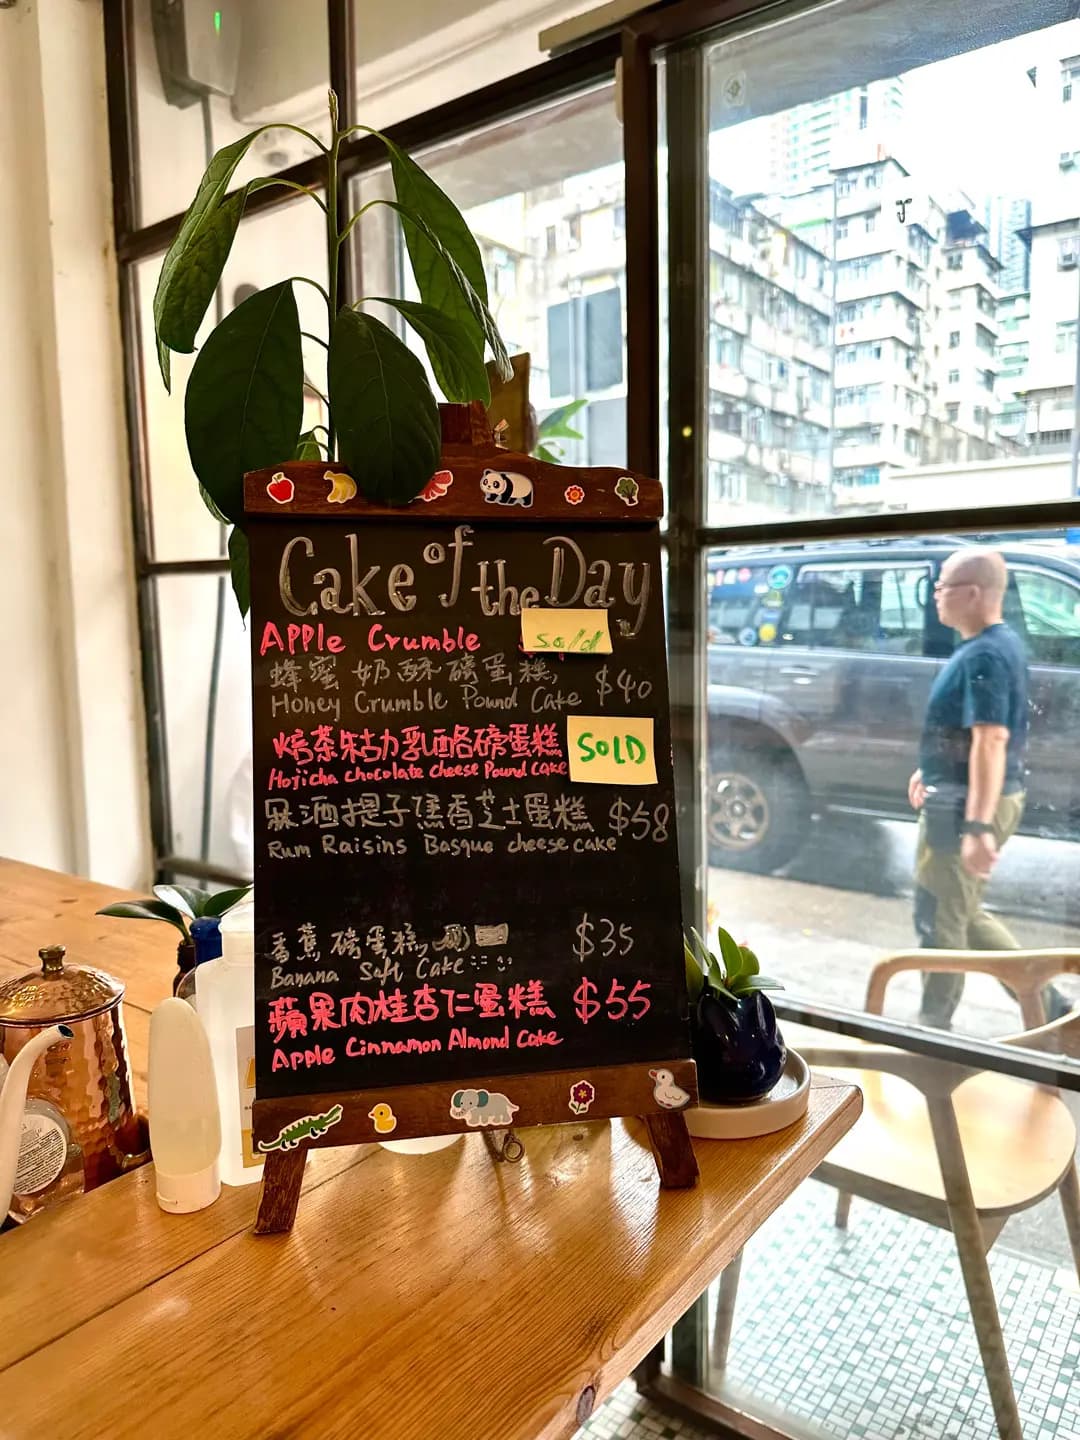 Cake of the Day
Apple Crumble sold
蜂蜜奶酥磅蛋糕, $40
Honey Crumble Pound Cake
焙茶朱古力乳酪磅蛋糕 SOLD
Hojicha chocolate cheese Pound Cake
冧酒提子焦香芝士蛋糕 $58
Rum Raisins Basque cheese cake
香蕉磅蛋糕 $35
Banana Soft Cake
蘋果肉桂杏仁蛋糕 $55
Apple Cinnamon Almond Cake